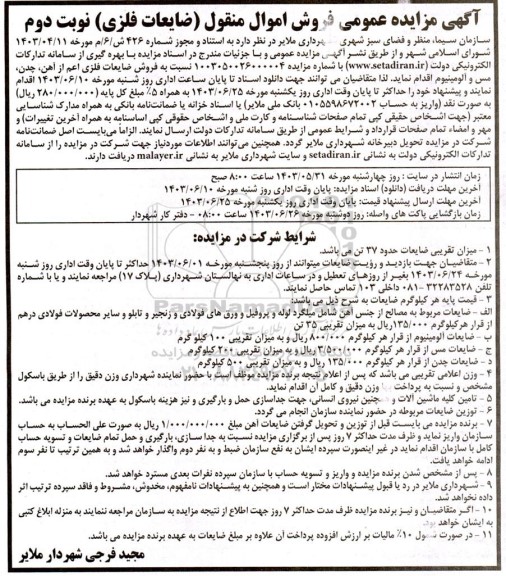 آگهی مزایده عمومی فروش اموال منقول (ضایعات فلزی) نوبت دوم
سازمان سیما، منظر و فضای سبز شهری شهرداری ملایر در نظر دارد به استناد و مجوز شماره ۴۲۶ ش/۶/م مورخه ۱۴۰۳/۰۴/۱۱
شورای اسلامی شهر و از طریق نشر آگهی مزایده عمومی و با جزئیات مندرج در اسناد مزایده با بهره گیری از سامانه تدارکات
الکترونیکی دولت (www.setadiran.ir) با شماره مزایده ۱۰۰۳۰۵۰۰۲۶۰۰۰۰۰۴ نسبت به فروش ضایعات فلزی اعم از آهن، چدن،
مس و آلومینیوم اقدام نماید. لذا متقاضیان می توانند جهت دانلود اسناد تا پایان ساعت اداری روز شنبه مورخه ۱۴۰۳/۰۶/۱۰ اقدام
نمایند و پیشنهاد خود را حداکثر تا پایان وقت اداری روز یکشنبه مورخه ۱۴۰۳/۰۶/۲۵ به همراه ۵٪ مبلغ کل پایه (۲۸۰/۰۰۰/۰۰۰ ریال)
به صورت نقد (واریز به حساب ۰۱۰۵۵۹۸۶۷۲۰۰۲ بانک ملی ملایر) یا اسناد خزانه یا ضمانتنامه بانکی به همراه مدارک شناسایی
معتبر (جهت اشخاص حقیقی کپی تمام صفحات شناسنامه و کارت ملی و اشخاص حقوقی کپی اساسنامه به همراه آخرین تغییرات) و
مهر و امضاء تمام صفحات قرارداد و شرایط عمومی از طریق سامانه تدارکات دولت ارسال نمایند. الزاماً می‌بایست اصل ضمانت‌نامه
شرکت در مزایده تحویل دبیرخانه شهرداری ملایر گردد. همچنین می‌توانند اطلاعات موردنیاز جهت شرکت در مزایده را از سامانه
تدارکات الکترونیکی دولت به نشانی setadiran.ir و سایت شهرداری ملایر به نشانی malayer.ir دریافت دارند.
زمان انتشار در سایت : روز چهارشنبه مورخه ۱۴۰۳/۰۵/۳۱ ساعت ۸:۰۰ صبح
آخرین مهلت دریافت (دانلود) اسناد مزایده: پایان وقت اداری روز شنبه مورخه ۱۴۰۳/۰۶/۱۰
آخرین مهلت ارسال پیشنهاد قیمت: پایان وقت اداری روز یکشنبه مورخه ۱۴۰۳/۰۶/۲۵
زمان بازگشایی پاکت های واصله: روز دوشنبه مورخه ۱۴۰۳/۰۶/۲۶ ساعت ۰۸:۰۰ - دفتر کار شهردار
شرایط شرکت در مزایده:
۱ - میزان تقریبی ضایعات حدود ۳۷ تن می باشد.
۲ - متقاضیان جهت بازدید و رویت ضایعات میتوانند از روز پنجشنبه مورخه ۱۴۰۳/۰۶/۰۱ حداکثر تا پایان وقت اداری روز شنبه
مورخه ۱۴۰۳/۰۶/۲۴ بغیر از روزهای تعطیل و در ساعات اداری به نهالستان شهرداری (پلاک ۱۷) مراجعه نمایند و یا با شماره
تلفن ۳۲۲۸۳۵۲۸-۰۸۱ داخلی ۱۰۳ تماس حاصل نمایند.
۳ - قیمت پایه هر کیلوگرم ضایعات به شرح ذیل می باشد:
الف - ضایعات مربوط به مصالح از جنس آهن شامل میلگرد لوله و پروفیل و ورق های فولادی و زنجیر و تابلو و سایر محصولات فولادی درهم
از قرار هر کیلوگرم ۱۳۵/۰۰۰ریال به میزان تقریبی ۳۵ تن
ب - ضایعات آلومینیوم از قرار هر کیلوگرم ۸۰۰/۰۰۰ ریال و به میزان تقریبی ۱۰۰ کیلو گرم
ج - ضایعات مس از قرار هر کیلوگرم ۲/۵۰۰/۰۰۰ ریال و به میزان تقریبی ۲۰۰ کیلوگرم
د - ضایعات چدن از قرار هر کیلوگرم ۱۳۵/۰۰۰ ریال و به میزان تقریبی ۵۰۰ کیلوگرم
۴ - وزن اعلامی تقریبی می باشد که پس از اعلام نتیجه برنده مزایده موظف است با حضور نماینده شهرداری وزن دقیق را از طریق باسکول
مشخص و نسبت به پرداخت وزن دقیق و کامل آن اقدام نماید.
۵ - تامین کلیه ماشین آلات و همچنین نیروی انسانی، جهت جداسازی حمل و بارگیری و نیز هزینه باسکول به عهده برنده مزایده می باشد.
۶ - توزین ضایعات مربوطه در حضور نماینده سازمان انجام می گردد.
۷ - برنده مزایده می بایست قبل از توزین و تحویل گرفتن ضایعات آهن مبلغ ۱/۰۰۰/۰۰۰/۰۰۰ ریال به صورت علی الحساب به حساب
سازمان واریز نماید و ظرف مدت حداکثر ۷ روز پس از برگزاری مزایده نسبت به جدا سازی، بارگیری و حمل تمام ضایعات و تسویه حساب
کامل با سازمان اقدام نماید در غیر اینصورت سپرده ایشان به نفع سازمان ضبط و به نفر دوم واگذار خواهد شد و به همین ترتیب تا نفر سوم
ادامه خواهد یافت.
۸ - پس از مشخص شدن برنده مزایده و واریز و تسویه حساب با سازمان سپرده نفرات بعدی مسترد خواهد شد.
۹ - شهرداری ملایر در رد یا قبول پیشنهادات مختار است و همچنین به پیشنهادات نامفهوم، مخدوش، مشروط و فاقد سپرده ترتیب اثر
داده نخواهد شد.
۱۰ - اگر متقاضیان و نیز برنده مزایده ظرف مدت حداکثر ۷ روز جهت اطلاع از نتیجه مزایده به سازمان مراجعه ننمایند به منزله ابلاغ کتبی
به ایشان خواهد بود.
۱۱ - در صورت شمول ۱۰٪ مالیات بر ارزش افزوده پرداخت آن علاوه بر مبلغ ضایعات به عهده برنده مزایده می باشد.
مجید فرجی شهردار ملایر